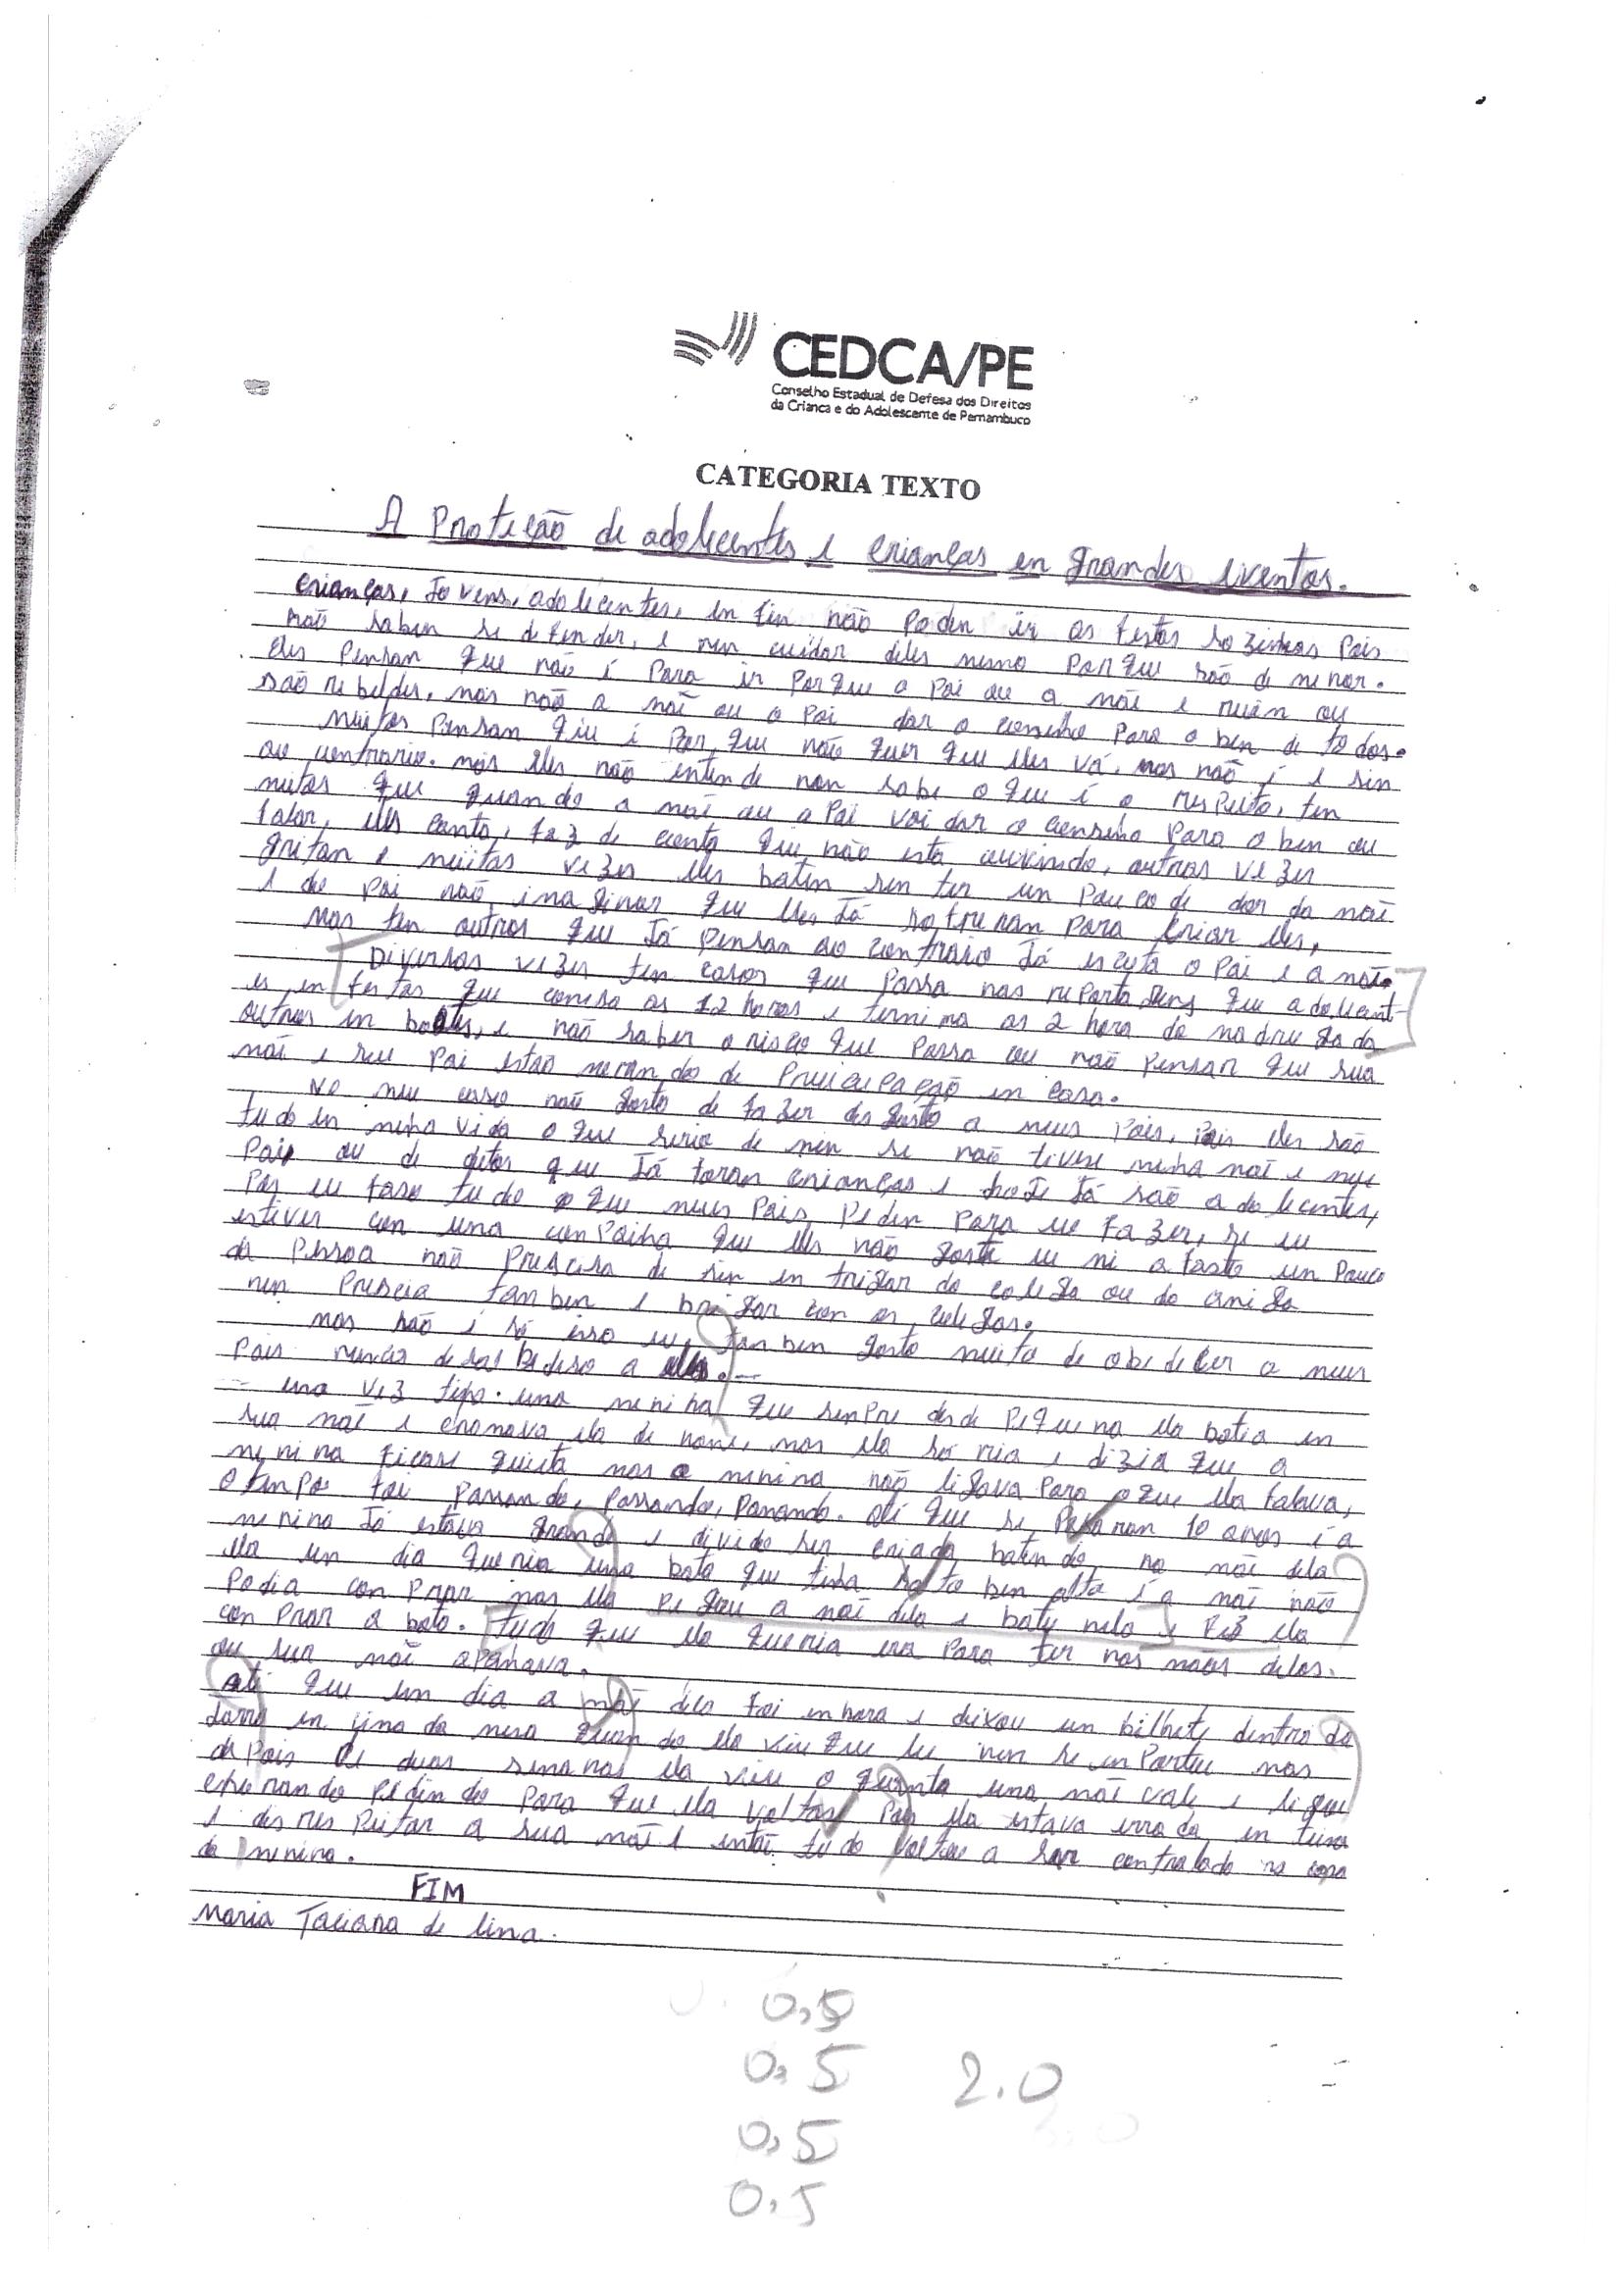 CEDCA/PE
Conselho Estadual de Defesa dos Direitos
da Criança e do Adolescente de Pernambuco
CATEGORIA TEXTO
A Proteção de adolecentes e crianças en grandes eventos.
crianças, Jovens, adolecentes, en fin não poden ir as festas sozinhas pois
não saben se defender, e nen cuidar deles nesmo porque são de nenor.
Eles pensan que não é para ir porque o pai ou a nãe e ruin ou
são rebeldes, nas não a nãe ou o pai dar o conselho para o ben de todos.
nuitos pensan que é por que não quer que eles vá, nas não é e sin
ao contrario. nais eles não entende nen sabe o que é o respeito, ten
nuitos que quando a nãe ou o pai vai dar o conselho para o ben ou
falar, eles canta, faz de conta que não está ouvindo, outras vezes
gritan e nuitas vezes eles baten sen ter un pouco de dor da nãe
e do pai não inaginar que eles já sofreran para criar eles,
nas ten outros que já pensan ao contraio já escuta o pai e a nãe.
Diversas vezes ten casos que passa nas reportagens que adolecent-
es en festas que conesa as 12 horas e ternina as 2 hora da nadrugada
outros en boates, e não saber o risco que passa ou não pensan que sua
nãe e seu pai estão norendo de preucupação en casa.
No neu casso não gosto de fazer desgosto a neus pais, pois eles são
tudo en ninha vida o que seria de nin se não tivese ninha nãe e neu
pai, ou de outos que já foran crianças e hoje já são adolecentes,
pos eu faso tudo o que neus pais peden para eu fazer, se eu
estiver con una conpainha que eles não gosta eu ni afasto un pouco
da pessoa não presisa de sin entrigar do colega ou do aniga
nen presisa tanben e brigar con os colegas.
nas não é só isso eu tanben gosto nuito de obedecer a neus
pais nunca desobediso a eles.
una vez tipo. una nenina que senpre desde pequena ela batia en
sua nãe e chanava ela de none, nas ela só ria e dizia que a
nenina ficase quieta nas a nenina não ligava para o que ela falava,
o tenpo foi passando, passando, passando. até que se pasaran 10 anos i a
nenina já estava grande e divido ser criada batendo na nãe dela
ela un dia queria una bota que tinha salto ben alto i a nãe não
podia conprar nas ela pegou a nãe dela e bateu nela e fez ela
conprar a bota. tudo que ela queria era para ter nas naos delas.
ou sua nãe apanhava.
até que un dia a nãe dela foi enbora e deixou un bilhete dentro do
jarro en sina da nesa quando ela viu que leu nen se enportu nas
depois de duas senanas ela viu o quanto una nãe vale e ligou
pedindo para que ela voltase pois ela estava errada en
e desrespeitar a sua nãe e então tudo voltou a ser controlado na casa
da nenina.
FIM
Maria Taciana de lina.
0,5
0,5
2.0
0,5
0,5